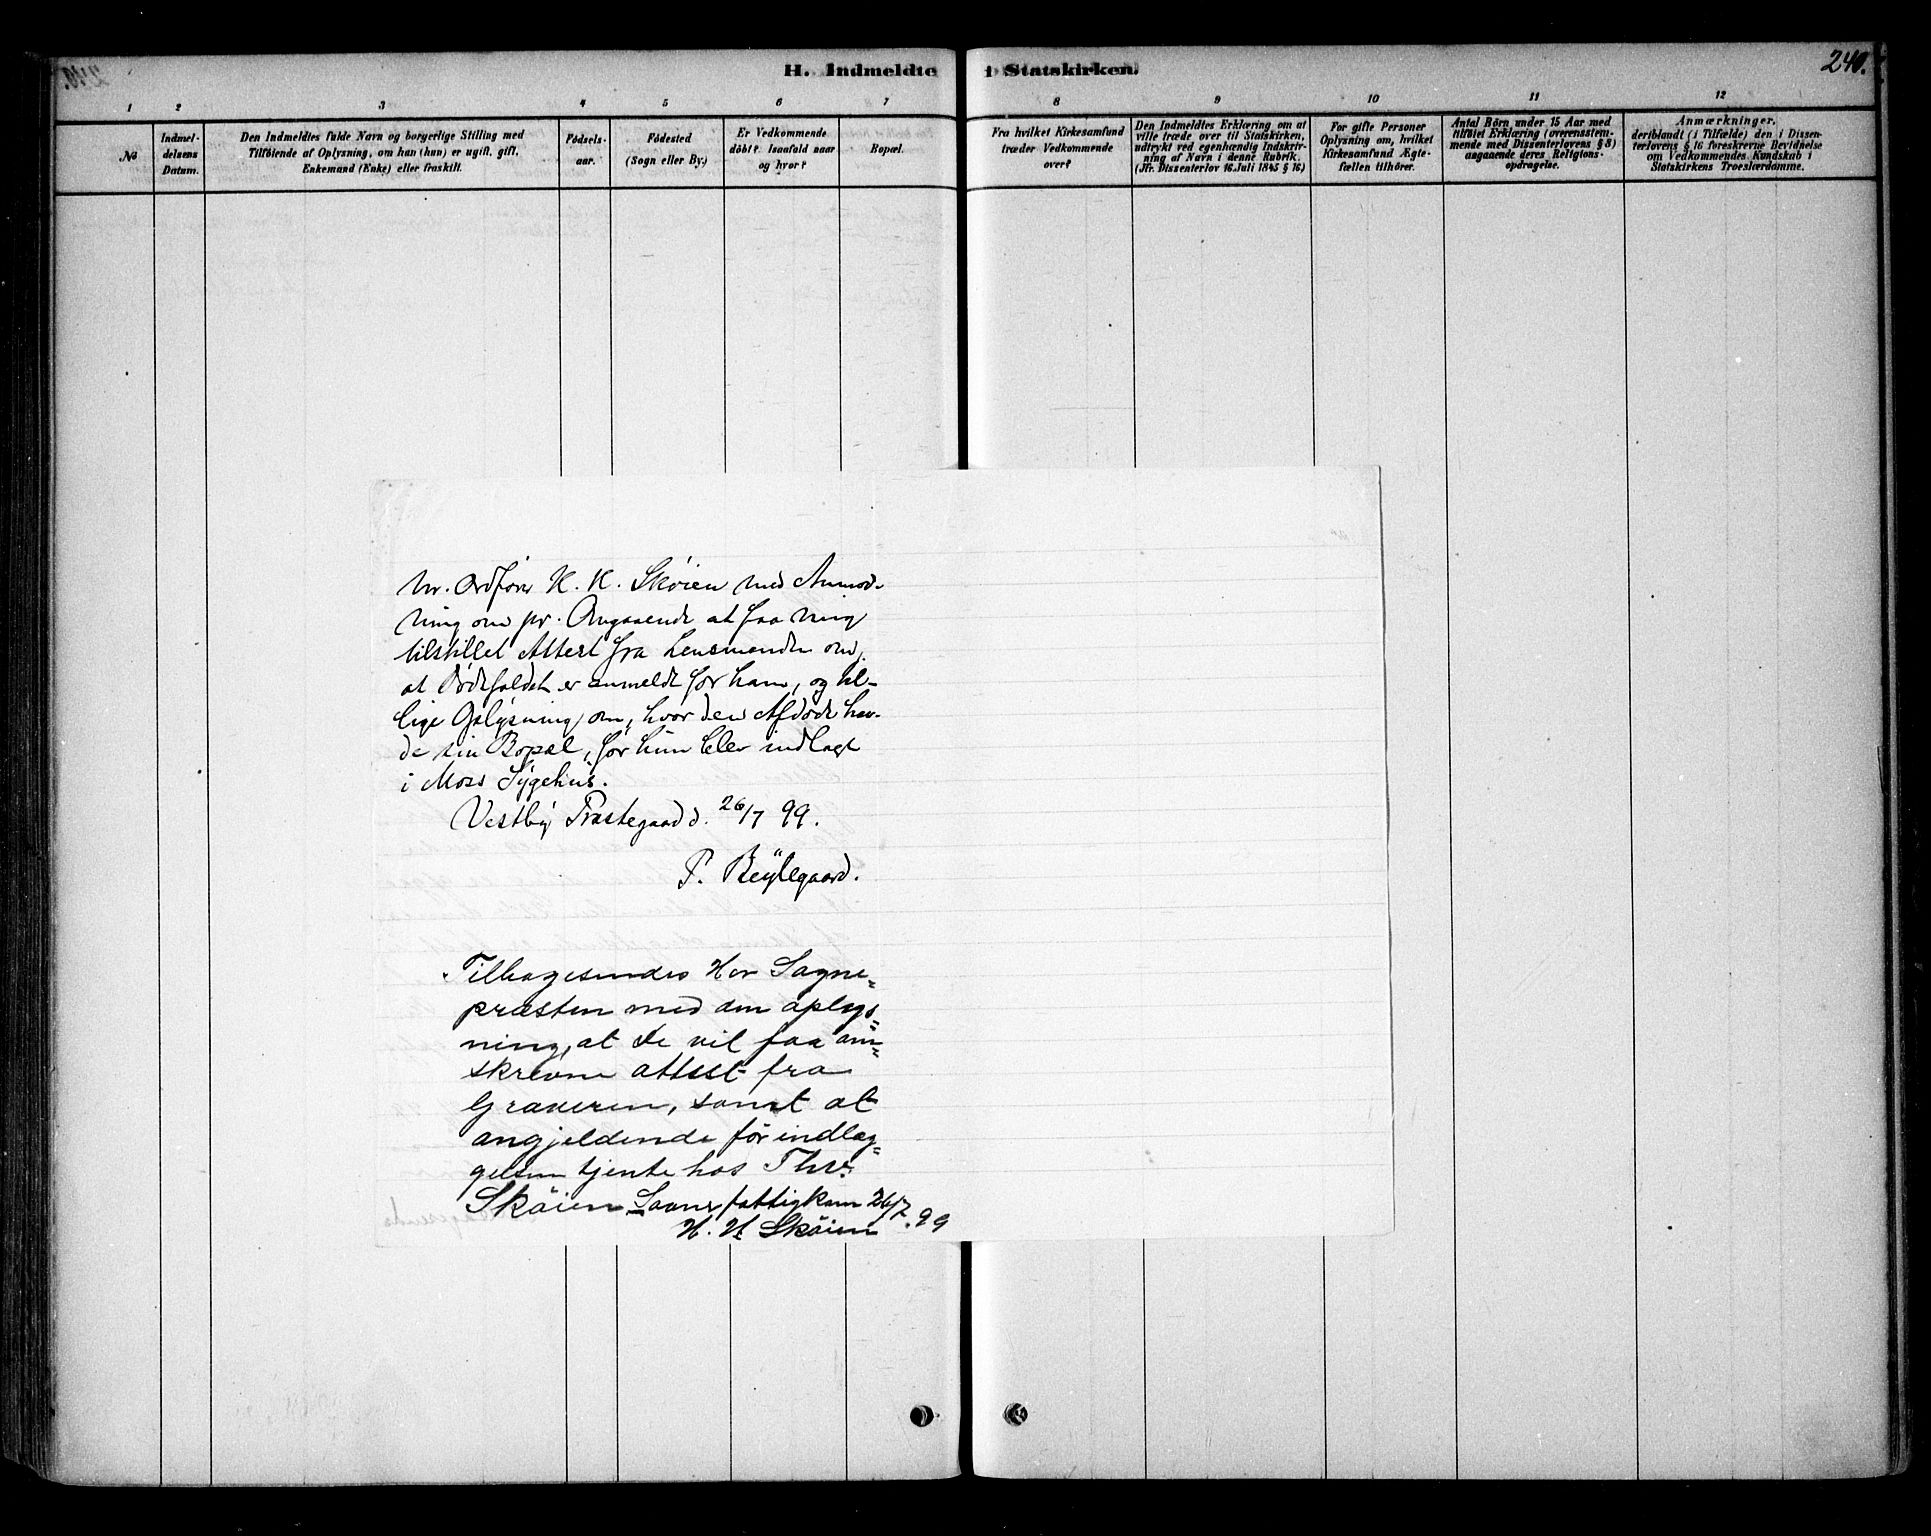 H. Indmeldte i Statskirken.
240.
1 2 3 4 5 6 7 8 9 10 11 12
No
Indmel-
delsens
Datum.
Den Indmeldtes fulde Navn og borgerlige Stilling med
Tilföiende af Oplysning, om han (hun) er ugift, gift,
Enkemand (Enke) eller fraskilt.
Födsels-
aar.
Födested
(Sogn eller By.)
Er Vedkommende
döbt? Isaafald naar
og hvor?
Bopæl.
Fra hvilket Kirkesamfund
træder Vedkommende
over?
Den Indmeldtes Erklæring om at
ville træde over til Statskirken,
udtrykt ved egenhændig Indskriv-
ning af Navn i denne Rubrik.
(Jfr. Dissenterlov 16. Juli 1845 § 16)
For gifte Personer
Oplysning om, hvilket
Kirkesamfund Ægte-
fællen tilhörer.
Antal Börn under 15 Aar med
tilföiet Erklæring (overensstem-
mende med Dissenterlovens § 8)
angaaende deres Religions-
opdragelse.
Anmærkninger,
deriblandt (i Tilfælde) den i Dissen-
terlovens § 16 foreskrevne Bevidnelse
om Vedkommendes Kundskab i
Statskirkens Troeslærdomme.
Hr. Ordfører H. H. Skøien med Anmod-
ning om pr. Omgaaende at faa mig
tilstillet Attest fra Lensmanden om,
at Dødsfaldet er anmeldt for ham, og til-
lige Oplysning om, hvor den Afdøde hav-
de sin Bopæl, før hun blev indlagt
i Moss Sygehus.
Vestby Præstegaard d. 26/7 99.
P. Bøylegaard.
Tilbagesendes Hr Sogne-
præsten med den oplys-
ning, at De vil faa om-
skrevne attest fra
Graveren, samt at
angjeldende før indlæg-
gelsen tjente hos Thv.
Skøien Saaner fattigkom 26/7.99
H. H Skøien